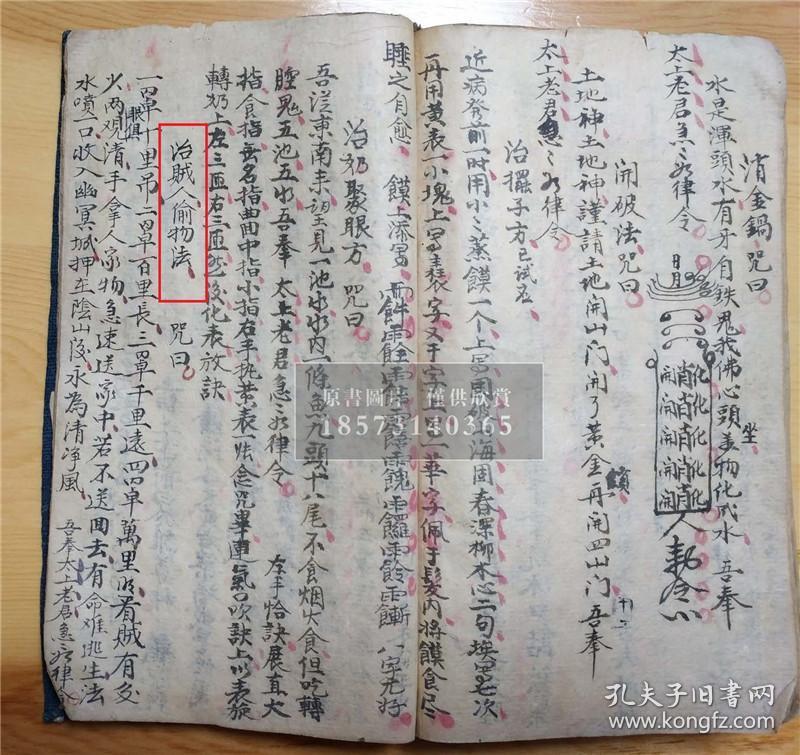 消金鍋 咒曰
水是渾頭水有牙自鉄鬼我佛心頭坐萬物化水 吾奉
太上老君急〻如律令
開破法咒曰
土地神土地神謹請土地開山门開了黃金再開四山门吾奉
太上老君急〻如律令
治擺子方已試老
近病發前一時用小〻蒸饃一个上寫周綏海固春深柳木心二句埃四七次
再用黃表一小塊上寫裴字又于字上一華字佩于髮内将饃食尽
睡之自愈 饃上添寫
八字尤好
治奶聚眼方 咒曰
吾从東南来望見一池水水内一條魚九頭十八尾不食烟火食但吃轉
腫鬼五池五水吾奉 太上老君急〻如律令 左手恰訣展直大
指食指无名指曲中指小指右手执黃表一张念咒畢運氣口吹訣上以表旋
轉奶上左三匝右三匝然後化表放訣
治賊人偷物法 咒曰
一罩十里吊二罩百里長三罩千里遠四罩萬里明看賊有多
少两眼俱观清手拿人家物急速送家中若不送回去有命难逃生法
水噴一口收入幽冥城押在陰山後永為清净風 吾奉太上老君急〻如律令
日月
開消化
人勅令
原書圖片 僅供欣賞
18573140365
孔夫子旧书网
www.kongfz.com